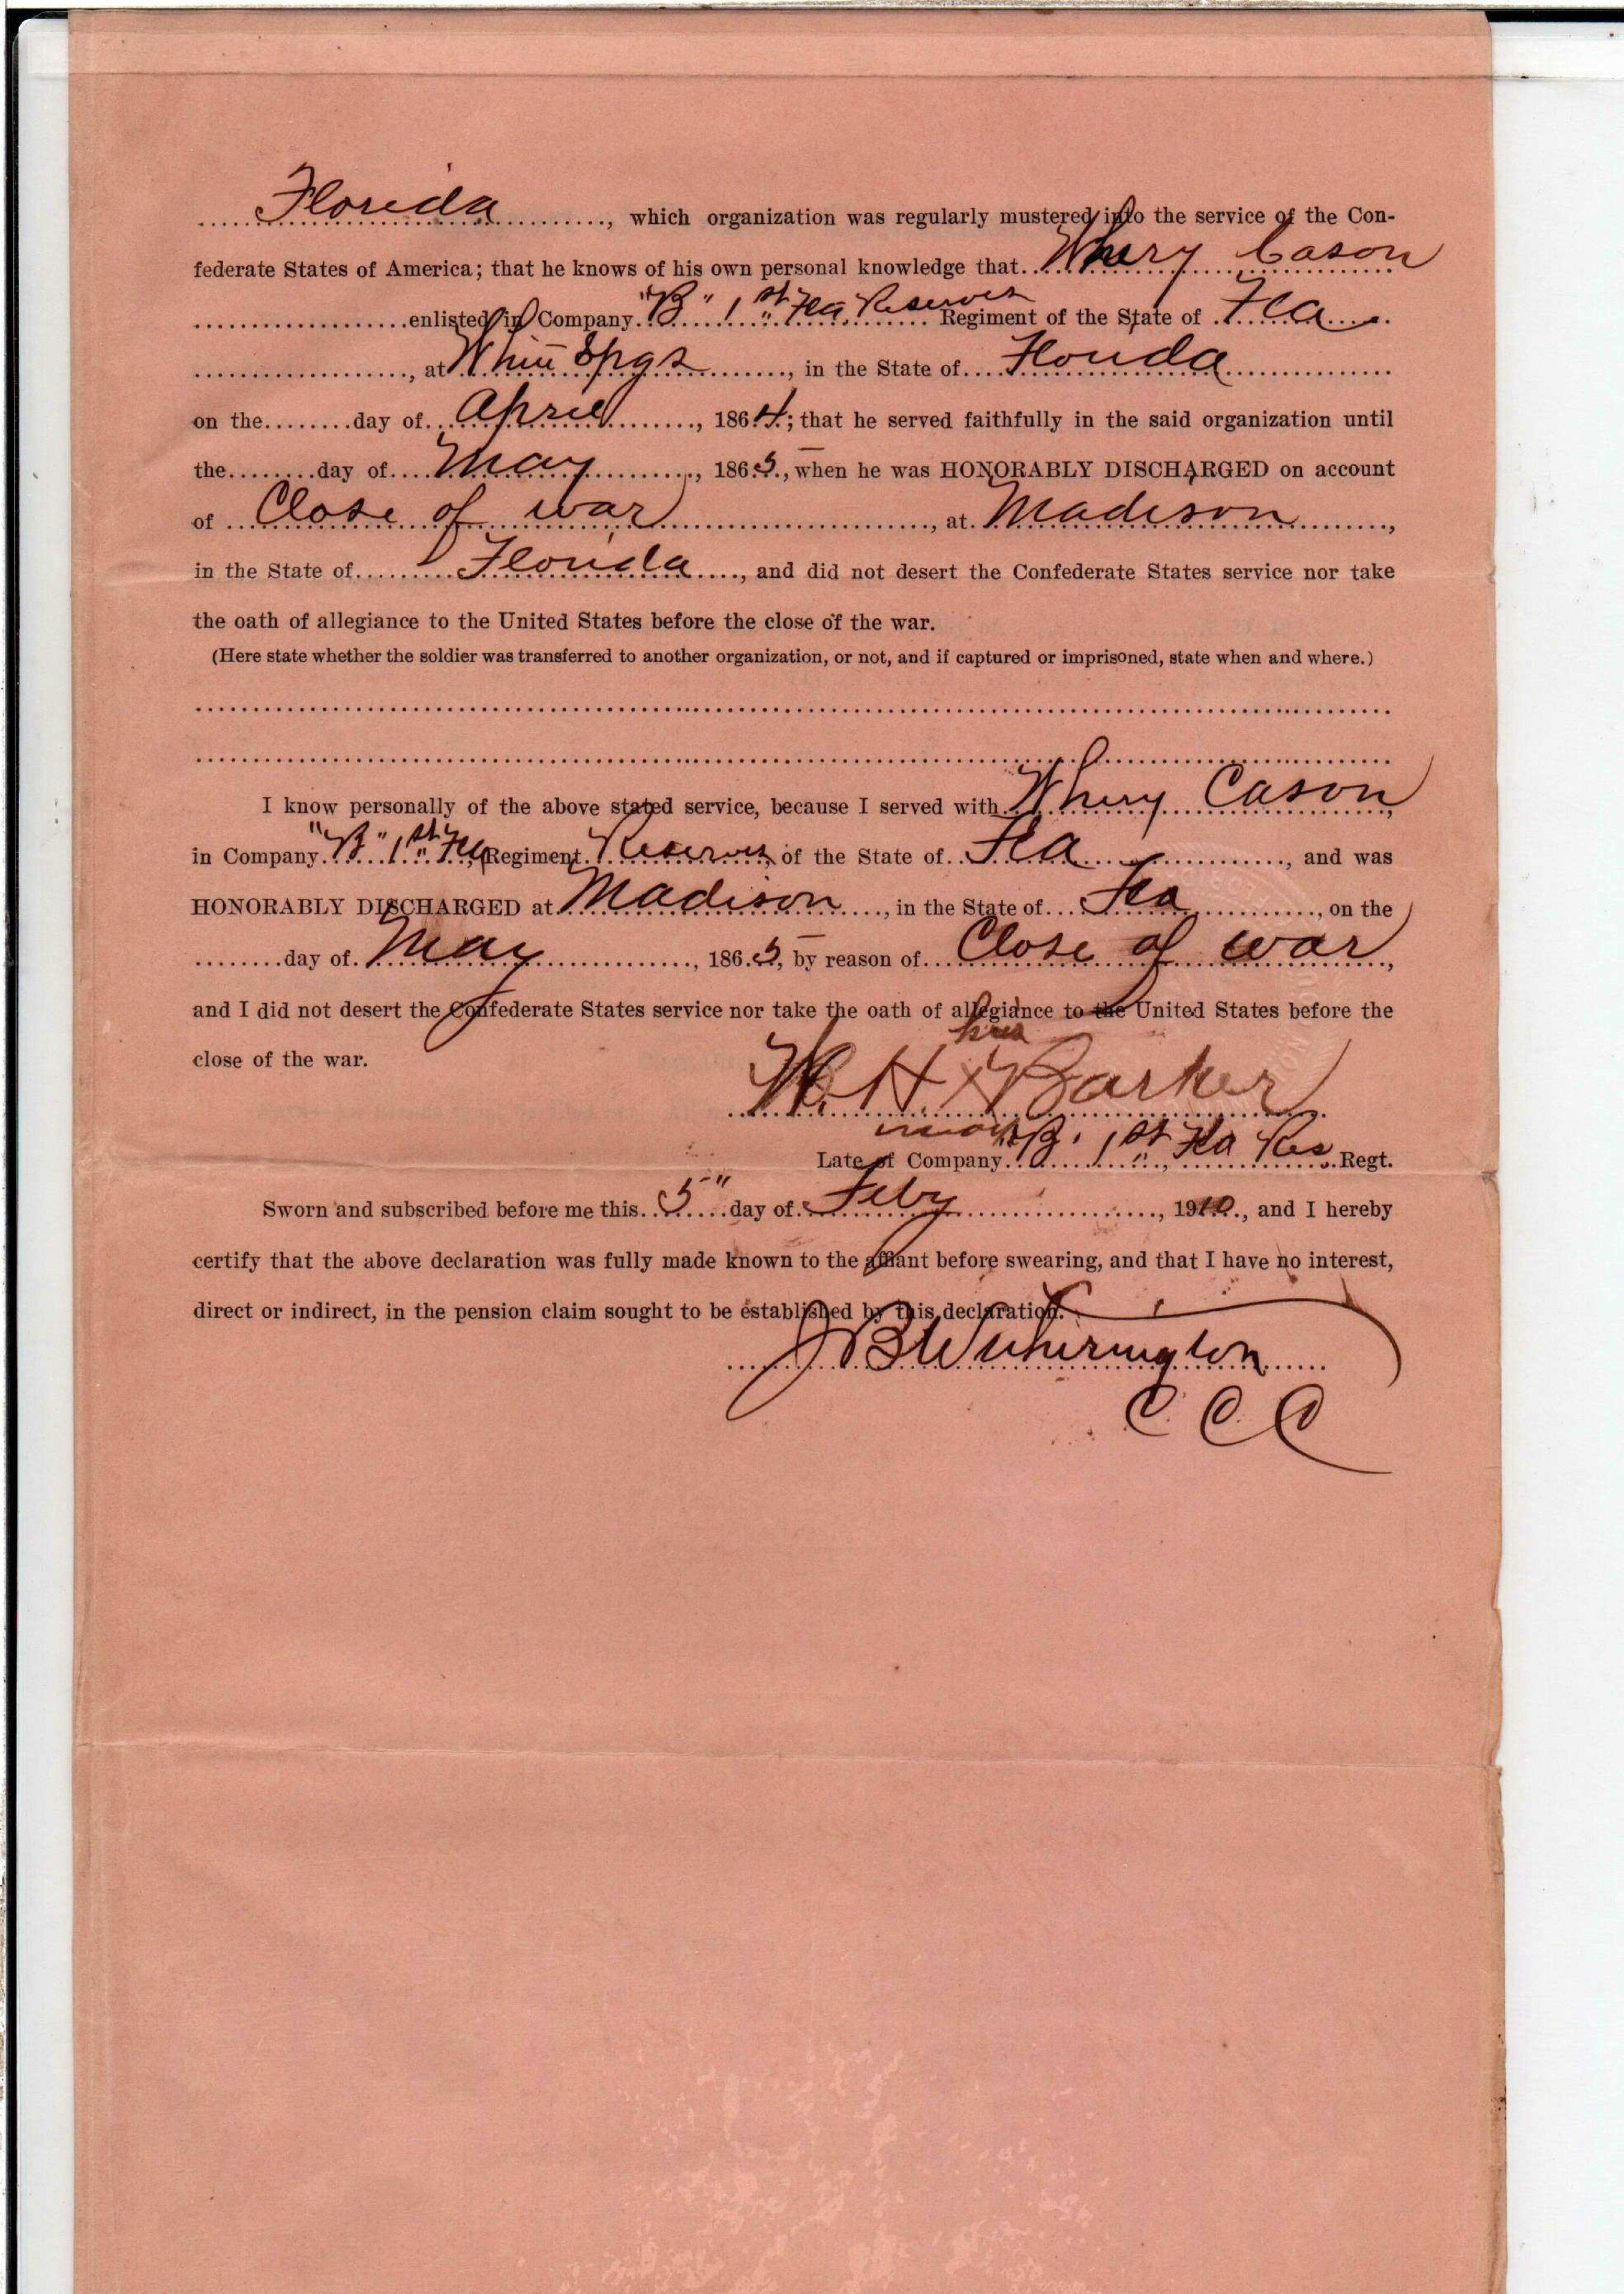 Florida, which organization was regularly mustered into the service of the Con-
federate States of America; that he knows of his own personal knowledge that Whery Cason
enlisted in Company "B" 1st Fla Reserves Regiment of the State of Fla
, at White Spgs, in the State of Florida
on the day of April, 1864; that he served faithfully in the said organization until
the day of May, 1865, when he was HONORABLY DISCHARGED on account
of Close of war, at Madison,
in the State of Florida, and did not desert the Confederate States service nor take
the oath of allegiance to the United States before the close of the war.
(Here state whether the soldier was transferred to another organization, or not, and if captured or imprisoned, state when and where.)
I know personally of the above stated service, because I served with Whery Cason,
in Company "B" 1st Fla, Regiment Reserves, of the State of Fla, and was
HONORABLY DISCHARGED at Madison, in the State of Fla, on the
day of May, 1865, by reason of Close of war,
and I did not desert the Confederate States service nor take the oath of allegiance to the United States before the
close of the war.
his
W. H. X Barker
mark
Late of Company "B" 1st Fla Res. Regt.
Sworn and subscribed before me this 5" day of Feby, 1910, and I hereby
certify that the above declaration was fully made known to the affiant before swearing, and that I have no interest,
direct or indirect, in the pension claim sought to be established by this declaration.
J B Witherington
C. C. C